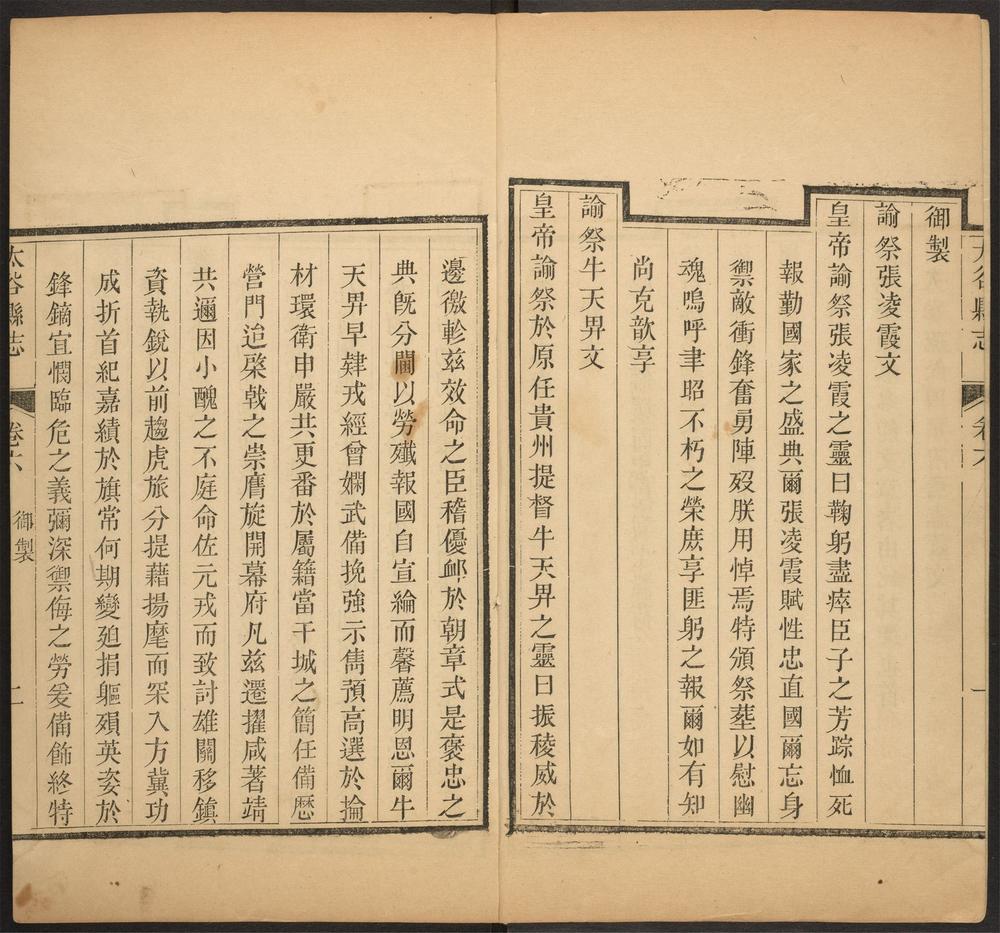 御製
諭祭張凌霞文
皇帝諭祭張凌霞之靈曰鞠躬盡瘁臣子之芳踪恤死
報勤國家之盛典爾張凌霞賦性忠直國爾忘身
禦敵衝鋒奮勇陣歿朕用悼焉特頒祭塟以慰幽
魂嗚呼聿昭不朽之榮庶享匪躬之報爾如有知
尚克歆享
諭祭牛天畀文
皇帝諭祭於原任貴州提督牛天畀之靈曰振稜威於
邊徼軫兹效命之臣稽優卹於朝章式是褒忠之
典旣分閫以勞殲報國自宣綸而馨薦明恩爾牛
天畀早肄戎經曾嫻武備挽強示雋預高選於掄
材環衛申嚴共更番於屬籍當干城之簡任備歷
營門迨棨戟之崇膺旋開幕府凡兹遷擢咸著靖
共邇因小醜之不庭命佐元戎而致討雄關移鎮
資執銳以前趨虎旅分提藉揚麾而罙入方冀功
成折首紀嘉績於旗常何期變廹捐軀殞英姿於
鋒鏑宜憫臨危之義彌深禦侮之勞爰備飾終特
太谷縣志
卷六
御製
二